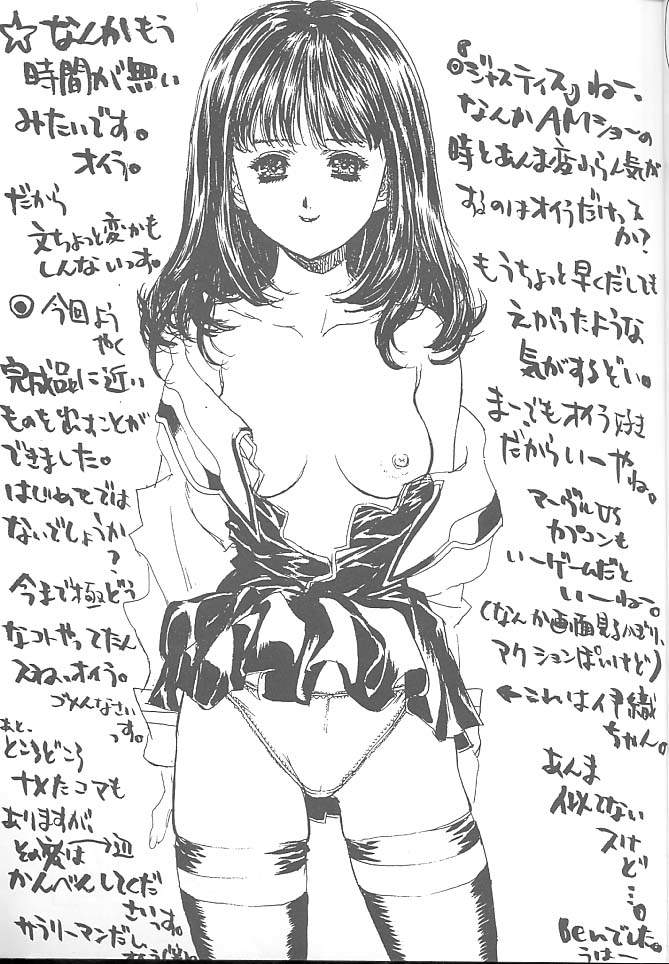 ☆なんかもう
時間が無い
みたいです。
オイラ。
だから
文ちょっと変かも
しんないっす。
◎今回よう
やく
完成品に近い
ものを出すことが
できました。
はじめてでは
ないでしょうか
?
今まで極どう
なコトやってたん
スね、オイラ。
ゴメんなさい
っす。
あと、
ところどころ
ナメたコマも
ありますが、
その変は
かんべんしてくだ
さいっす。
サラリーマンだし
『ジャスティス』ねー、
なんかAMショーの
時とあんま変わらん気が
するのはオイラだけっス
か?
もうちょっと早くだしても
えがったような
気がするぞい。
まーでもオイラ好き
だからいーやね。
マーヴルVS
カプコンも
いーゲームだと
いーねー。
(なんか画面見るかぎり、
アクションぽいけど)
←これは伊織
ちゃん。
あんま
似てない
スけ
ど…。
Benでした。
うはー